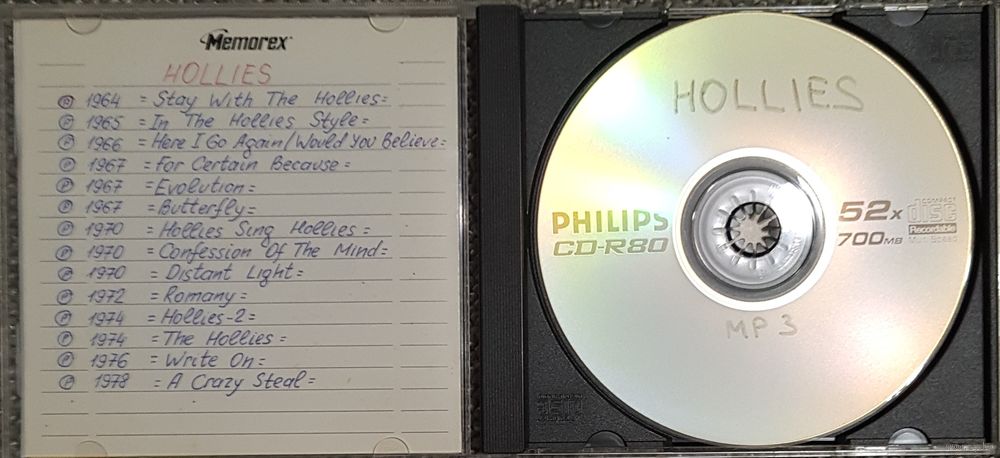 Memorex
HOLLIES
℗ 1964 = Stay With The Hollies=
℗ 1965 = In The Hollies Style=
℗ 1966 = Here I Go Again/Would You Believe=
℗ 1967 = For Certain Because=
℗ 1967 = Evolution=
℗ 1967 = Butterfly=
℗ 1970 = Hollies Sing Hollies=
℗ 1970 = Confession Of The Mind=
℗ 1970 = Distant Light=
℗ 1972 = Romany=
℗ 1974 = Hollies-2=
℗ 1974 = The Hollies=
℗ 1976 = Write On=
℗ 1978 = A Crazy Steal=
HOLLIES
PHILIPS
CD-R80
52x
700MB
COMPACT
disc
Recordable
MP3